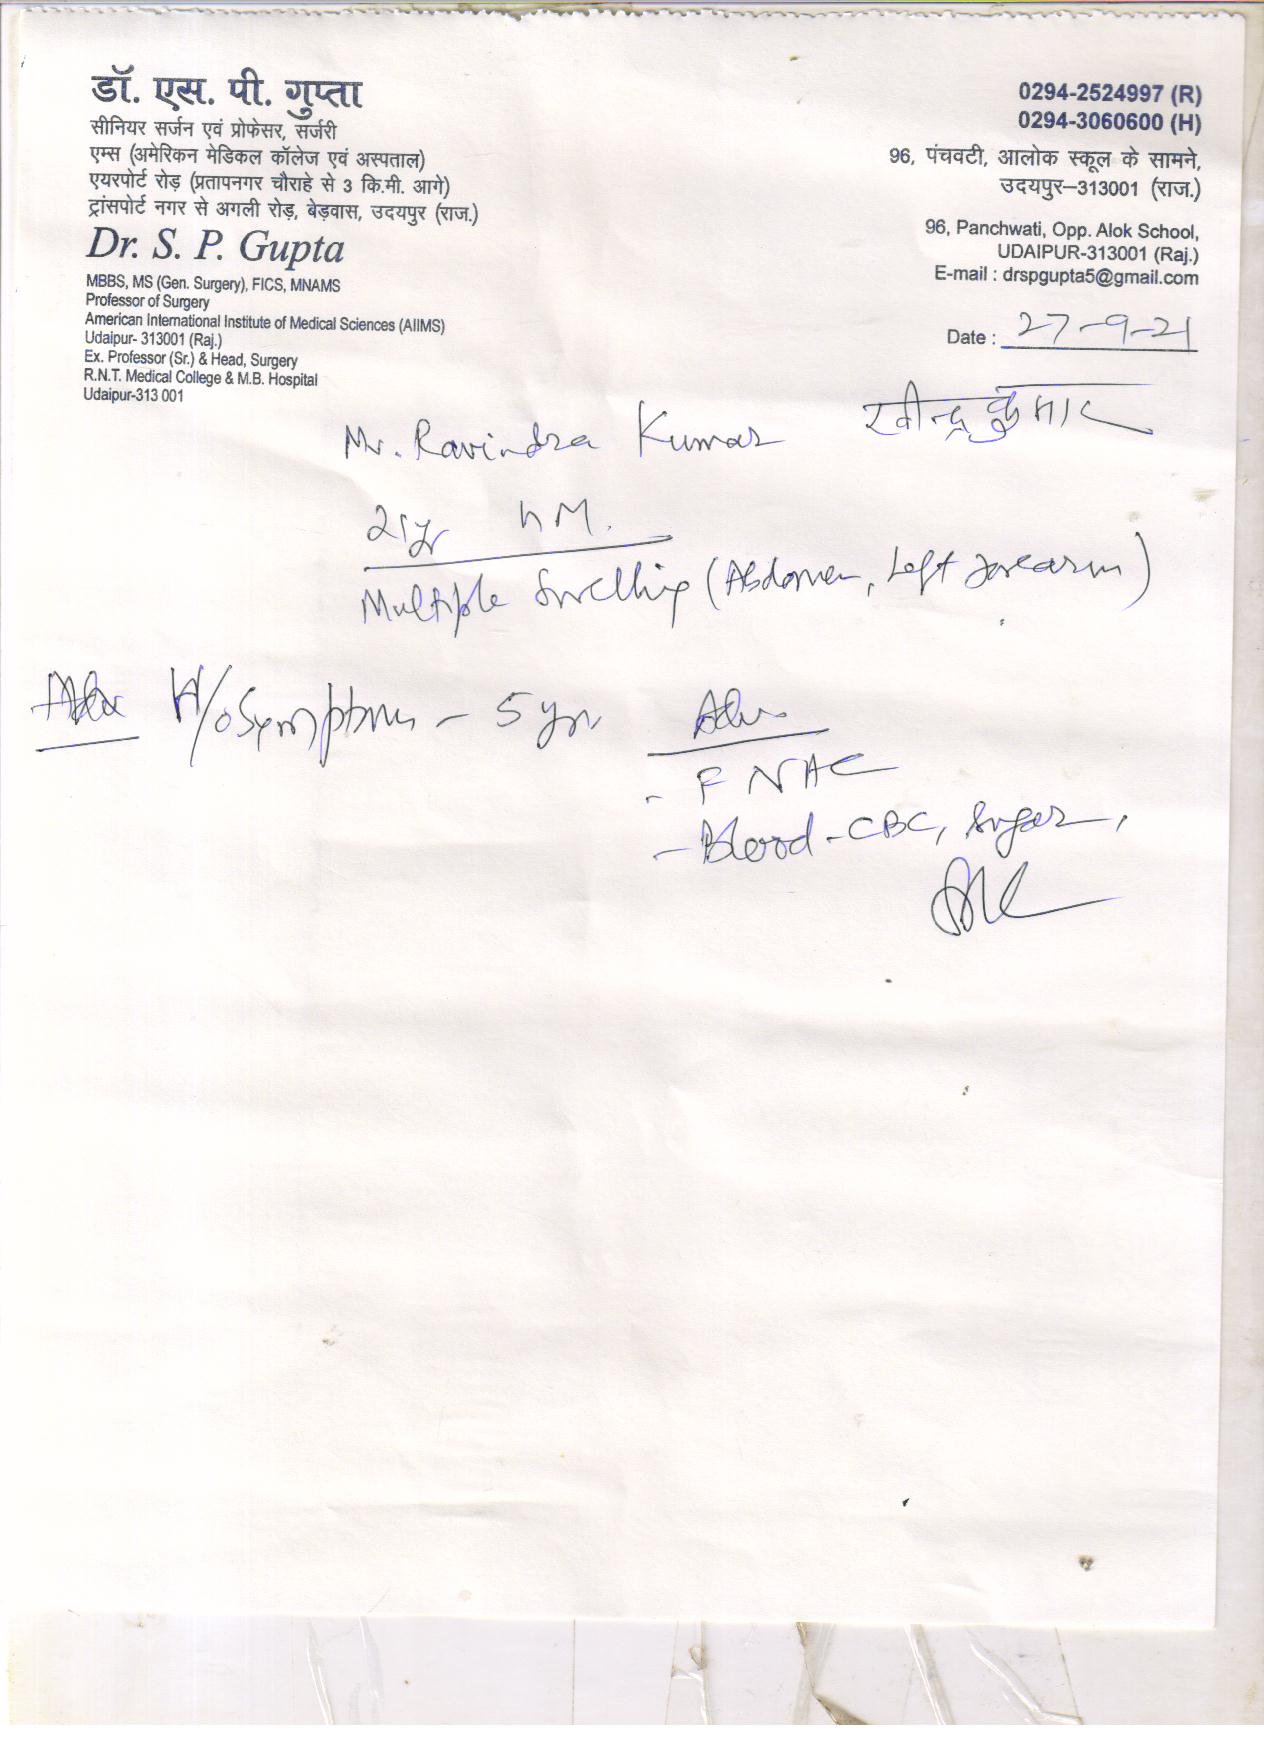 डॉ. एस. पी. गुप्ता
सीनियर सर्जन एवं प्रोफेसर, सर्जरी
एम्स (अमेरिकन मेडिकल कॉलेज एवं अस्पताल)
एयरपोर्ट रोड़ (प्रतापनगर चौराहे से 3 कि.मी. आगे)
ट्रांसपोर्ट नगर से अगली रोड़, बेड़वास, उदयपुर (राज.)
Dr. S. P. Gupta
MBBS, MS (Gen. Surgery), FICS, MNAMS
Professor of Surgery
American International Institute of Medical Sciences (AIIMS)
Udaipur- 313001 (Raj.)
Ex. Professor (Sr.) & Head, Surgery
R.N.T. Medical College & M.B. Hospital
Udaipur-313 001
0294-2524997 (R)
0294-3060600 (H)
96, पंचवटी, आलोक स्कूल के सामने,
उदयपुर–313001 (राज.)
96, Panchwati, Opp. Alok School,
UDAIPUR-313001 (Raj.)
E-mail : drspgupta5@gmail.com
Date : 27-9-21
Mr. Ravindra Kumar रवीन्द्र कुमार
21yr M.
Multiple Swelling (Abdomen, Left forearm)
H/o Symptoms - 5 yrs
Adv.
- FNAC
- Blood - CBC, Sugar,